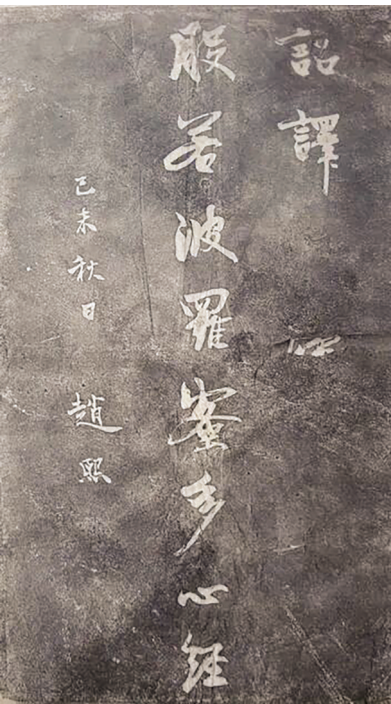 詔譯
般若波羅蜜多心経
己未秋日 趙熙